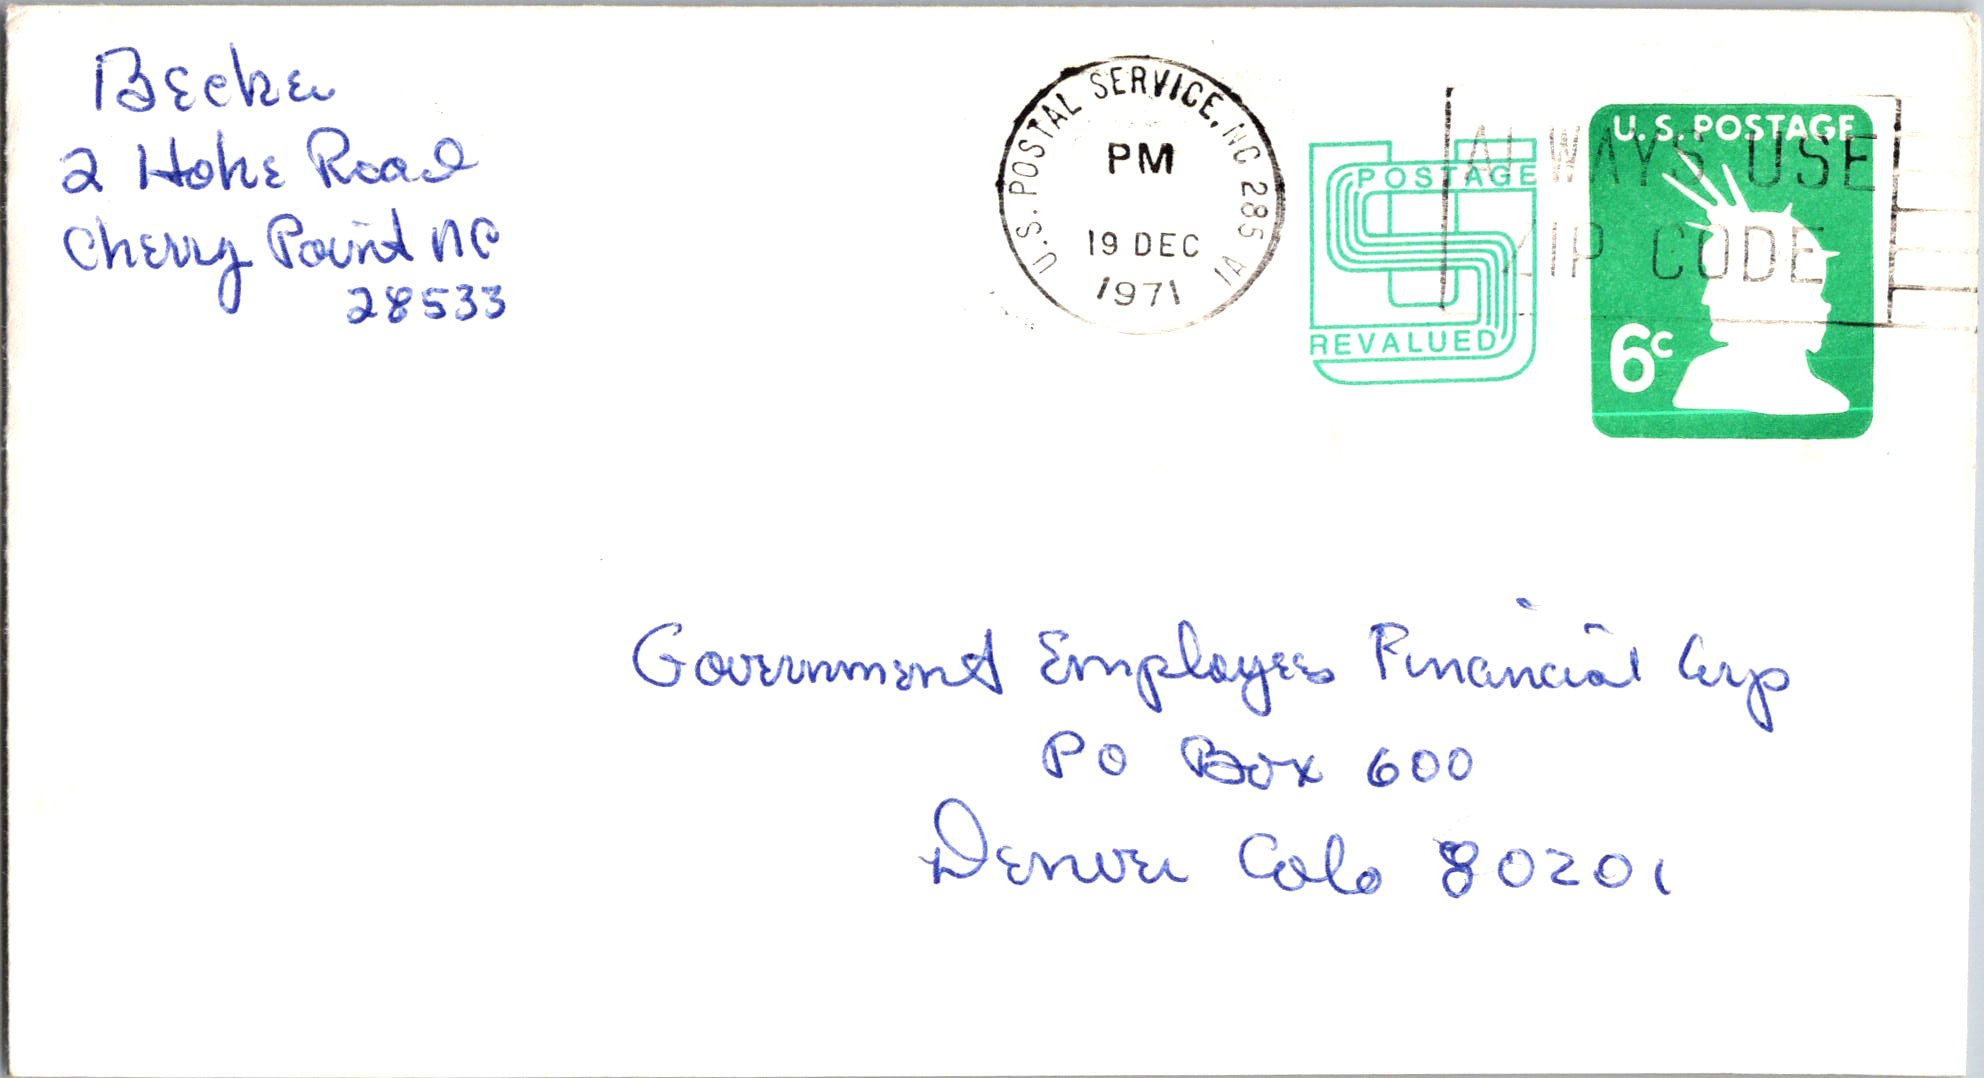 Becker
2 Hoke Road
Cherry Point NC
28533
U.S. POSTAL SERVICE, NC 285 VI
PM
19 DEC
1971
POSTAGE
REVALUED
ALWAYS USE
ZIP CODE
U.S. POSTAGE
6c
Government Employees Financial Corp
PO Box 600
Denver Colo 80201